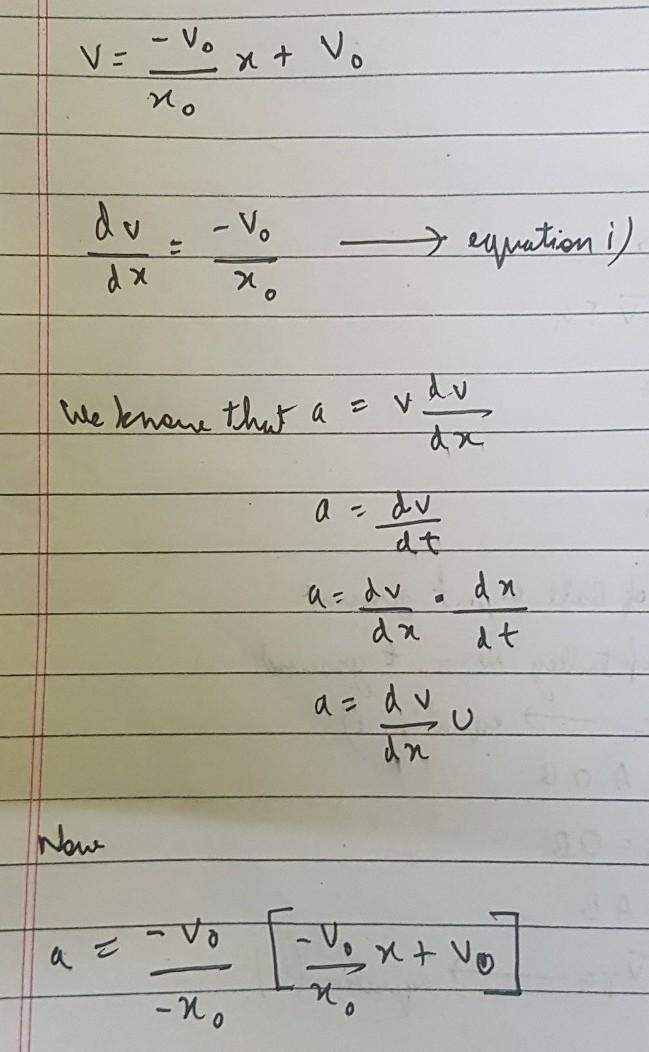 V = -V₀/x₀ x + V₀
dv/dx = -V₀/x₀ ⟶ equation i)
We know that a = v dv/dx
a = dv/dt
a = dv/dx · dx/dt
a = dv/dx υ
Now
a = -V₀/-x₀ [-V₀/x₀ x + V₀]